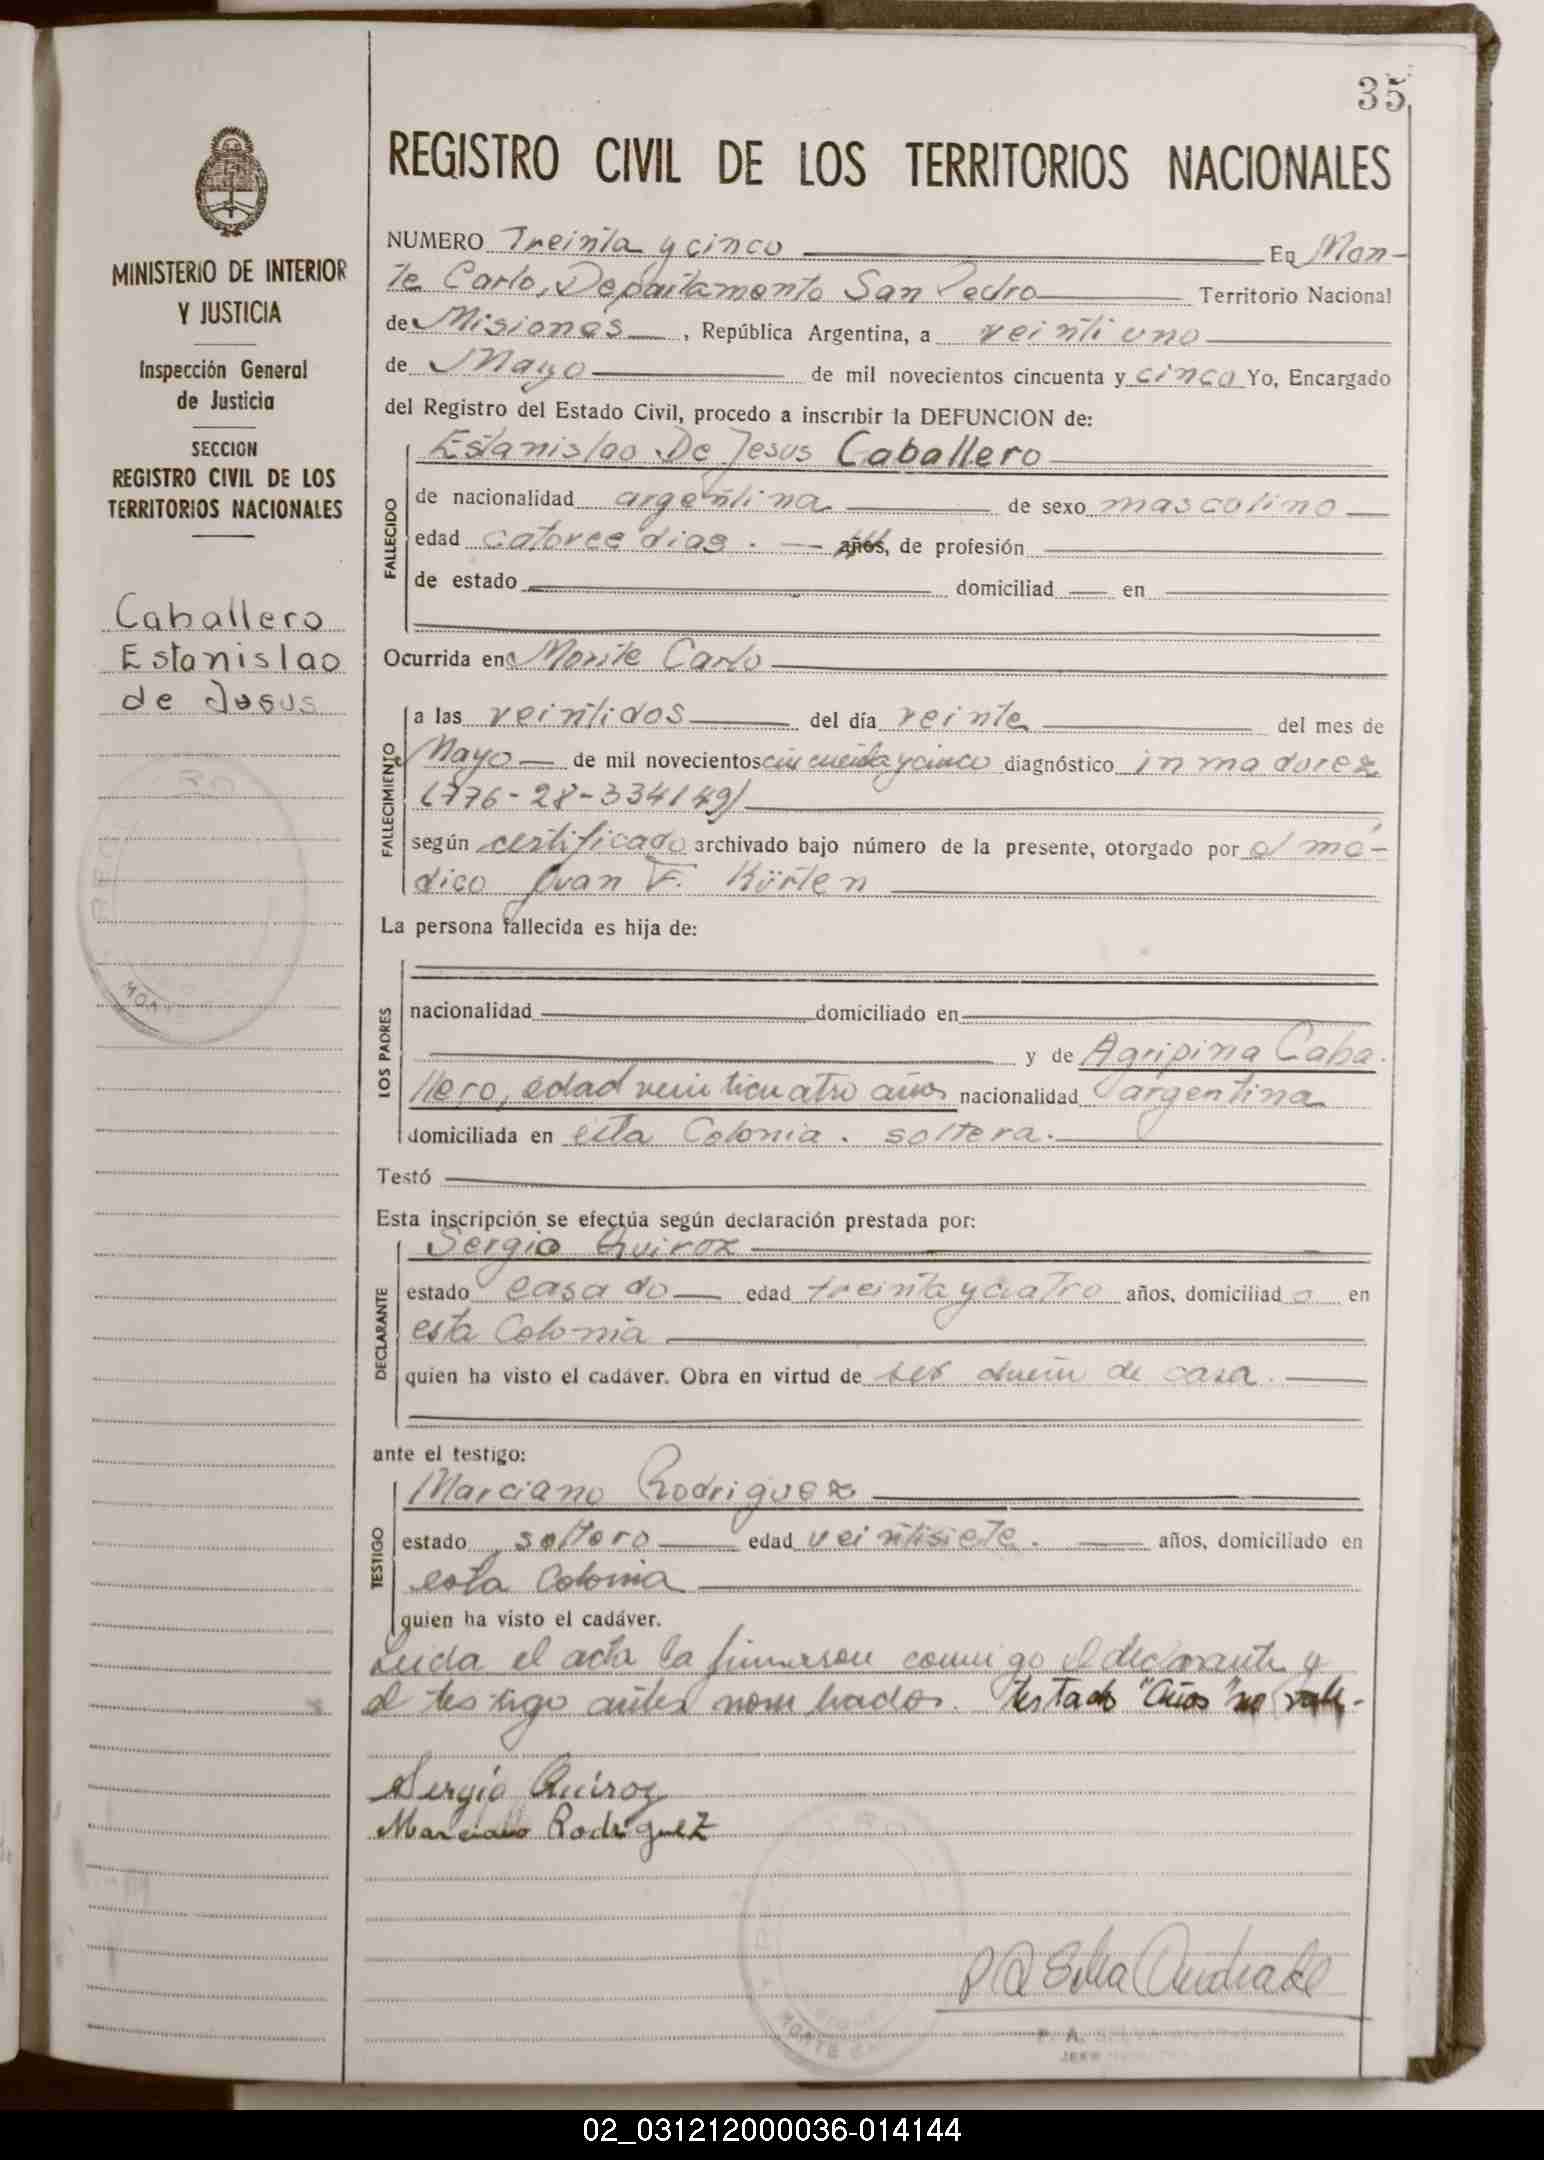 35
REGISTRO CIVIL DE LOS TERRITORIOS NACIONALES
MINISTERIO DE INTERIOR
Y JUSTICIA
Inspección General
de Justicia
SECCION
REGISTRO CIVIL DE LOS
TERRITORIOS NACIONALES
Caballero
Estanislao
de Jesus
NUMERO Treinta y cinco En Mon-
te Carlo, Departamento San Pedro Territorio Nacional
de Misiones, República Argentina, a veintiuno
de Mayo de mil novecientos cincuenta y cinco Yo, Encargado
del Registro del Estado Civil, procedo a inscribir la DEFUNCION de:
FALLECIDO
Estanislao De Jesus Caballero
de nacionalidad argentina de sexo masculino
edad catorce dias. años, de profesión
de estado domiciliad en
Ocurrida en Monte Carlo
FALLECIMIENTO
a las veintidos del día veinte del mes de
Mayo de mil novecientos cincuenta y cinco diagnóstico inmadurez
(776-28-334149)
según certificado archivado bajo número de la presente, otorgado por el mé-
dico Juan F. Kürten
La persona fallecida es hija de:
LOS PADRES
nacionalidad domiciliado en
y de Agripina Caba-
llero, edad veinticuatro años nacionalidad argentina
domiciliada en esta Colonia. soltera.
Testó
Esta inscripción se efectúa según declaración prestada por:
DECLARANTE
Sergio Quiroz
estado casado edad treinta y cuatro años, domiciliad o en
esta Colonia
quien ha visto el cadáver. Obra en virtud de ser dueño de casa.
ante el testigo:
TESTIGO
Marciano Rodriguez
estado soltero edad veintisiete. años, domiciliado en
esta Colonia
quien ha visto el cadáver.
Leida el acta la firmaron conmigo el declarante y
el testigo antes nombrados. Testado "Años" no vale.-
Sergio Quiroz
Marciano Rodriguez
MONTE
P. A.
02_031212000036-014144